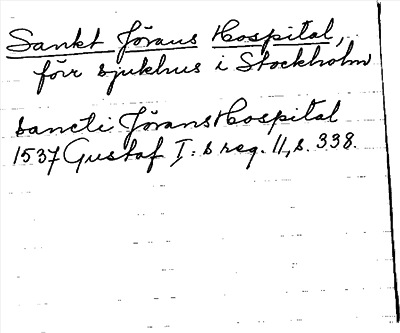 Sankt Jörans Hospital,
förr sjukhus i Stockholm
sancti Jörans Hospital
1537 Gustaf I:s reg. 11, s. 338.